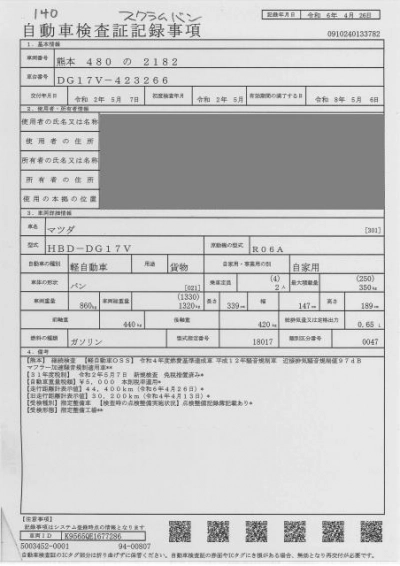 140 スクラムバン
記録年月日 令和 6年 4月 26日
自動車検査証記録事項
0910240133782
1．基本情報
車両番号 熊本 480 の 2182
車台番号 DG17V-423266
交付年月日 令和 2年 5月 7日 初度検査年月 令和 2年 5月 有効期間の満了する日 令和 8年 5月 6日
2．使用者・所有者情報
使用者の氏名又は名称
使用者の住所
所有者の氏名又は名称
所有者の住所
使用の本拠の位置
3．車両詳細情報
車名 マツダ [301]
型式 HBD-DG17V 原動機の型式 R06A
自動車の種別 軽自動車 用途 貨物 自家用・事業用の別 自家用
車体の形状 バン [021] 乗車定員 (4) 2人 最大積載量 (250) 350kg
車両重量 860kg 車両総重量 (1330) 1320kg 長さ 339cm 幅 147cm 高さ 189cm
前軸重 440kg 後軸重 420kg 総排気量又は定格出力 0.65 L
燃料の種類 ガソリン 型式指定番号 18017 類別区分番号 0047
4．備考
[熊本] 継続検査 [軽自動車OSS] 令和4年度燃費基準達成車 平成12年騒音規制車 近接排気騒音規制値97dB
マフラー加速騒音規制適用車**
[31年度税制] 令和2年5月7日 新規検査 免税措置済み*
[自動車重量税額] ¥5,000 本則税率適用*
[走行距離計表示値] 44,400km (令和6年4月26日)*
[旧走行距離計表示値] 30,200km (令和4年4月13日)*
[受検種別] 指定整備車 [検査時の点検整備実施状況] 点検整備記録簿記載あり*
[受検形態] 指定整備工場**
[注意事項]
記録事項はシステム登録時点の情報となります
車両ID K9565QE1677286
5003452-0001 94-00807
自動車検査証のICタグ部分は折り曲げずに保管ください。自動車検査証の券面やICタグにき損がある場合、無効となり再交付が必要です。